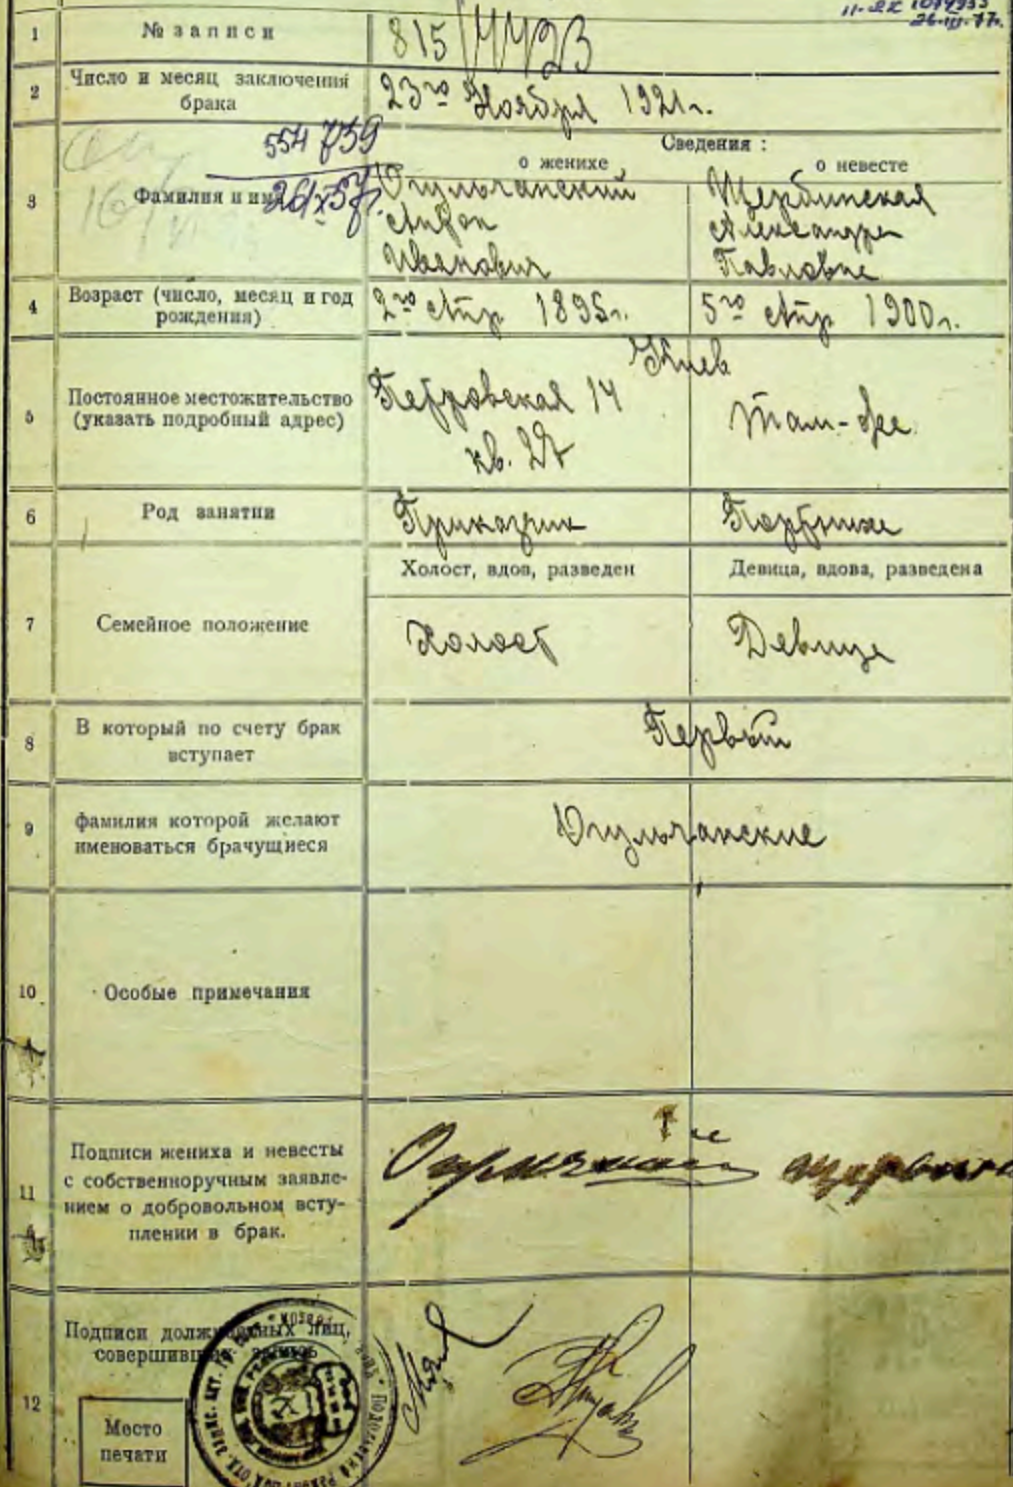 26.III.77.
1
№ записи
815/4423
2
Число и месяц заключения
брака
23го Ноября 1921г.
554 759
Сведения :
о женихе
о невесте
3
Фамилия и имя
Огульчанский
Антон
Иванович
Щербинская
Александра
Павловна
4
Возраст (число, месяц и год
рождения)
2го Апр 1895г.
5го Апр 1900г.
5
Постоянное местожительство
(указать подробный адрес)
Киев
Петровская 14
кв.
Там-же
6
Род занятии
Приказчик
Портниха
7
Семейное положение
Холост, вдов, разведен
Девица, вдова, разведена
Холост
Девица
8
В который по счету брак
вступает
Первый
9
фамилия которой желают
именоваться брачущиеся
Огульчанские
10
Особые примечания
11
Подписи жениха и невесты
с собственноручным заявле-
нием о добровольном всту-
плении в брак.
12
Подписи должностных лиц,
совершивших запись
Место
печати